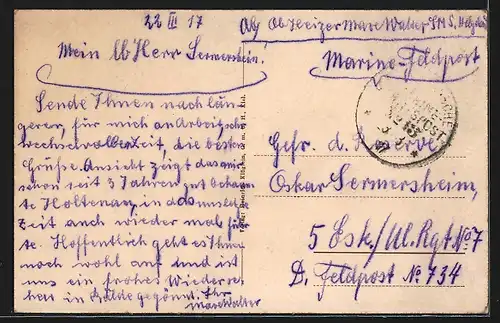 22 III 17
Abs Ob Heizer Max Walter S.M.S. Helgoland
Marine-Feldpost
Mein lb Herr Sermersheim.
Sende Ihnen nach län-
gerer, für mich an Arbeit
wechselvoller Zeit, die besten
Grüße. Ansicht zeigt das mir
schon seit 3 Jahren gut bekann
te Holtenau, in das
Zeit auch wieder mal
te. Hoffentlich geht es Ihnen
noch wohl auf und ist
uns ein frohes Wiederse-
hen in Bälde gegönnt. Ihr
Max Walter
Gefr. d. Reserve
Oskar Sermersheim,
5 Esk./Ul. Rgt. No 7
D. Feldpost No. 734